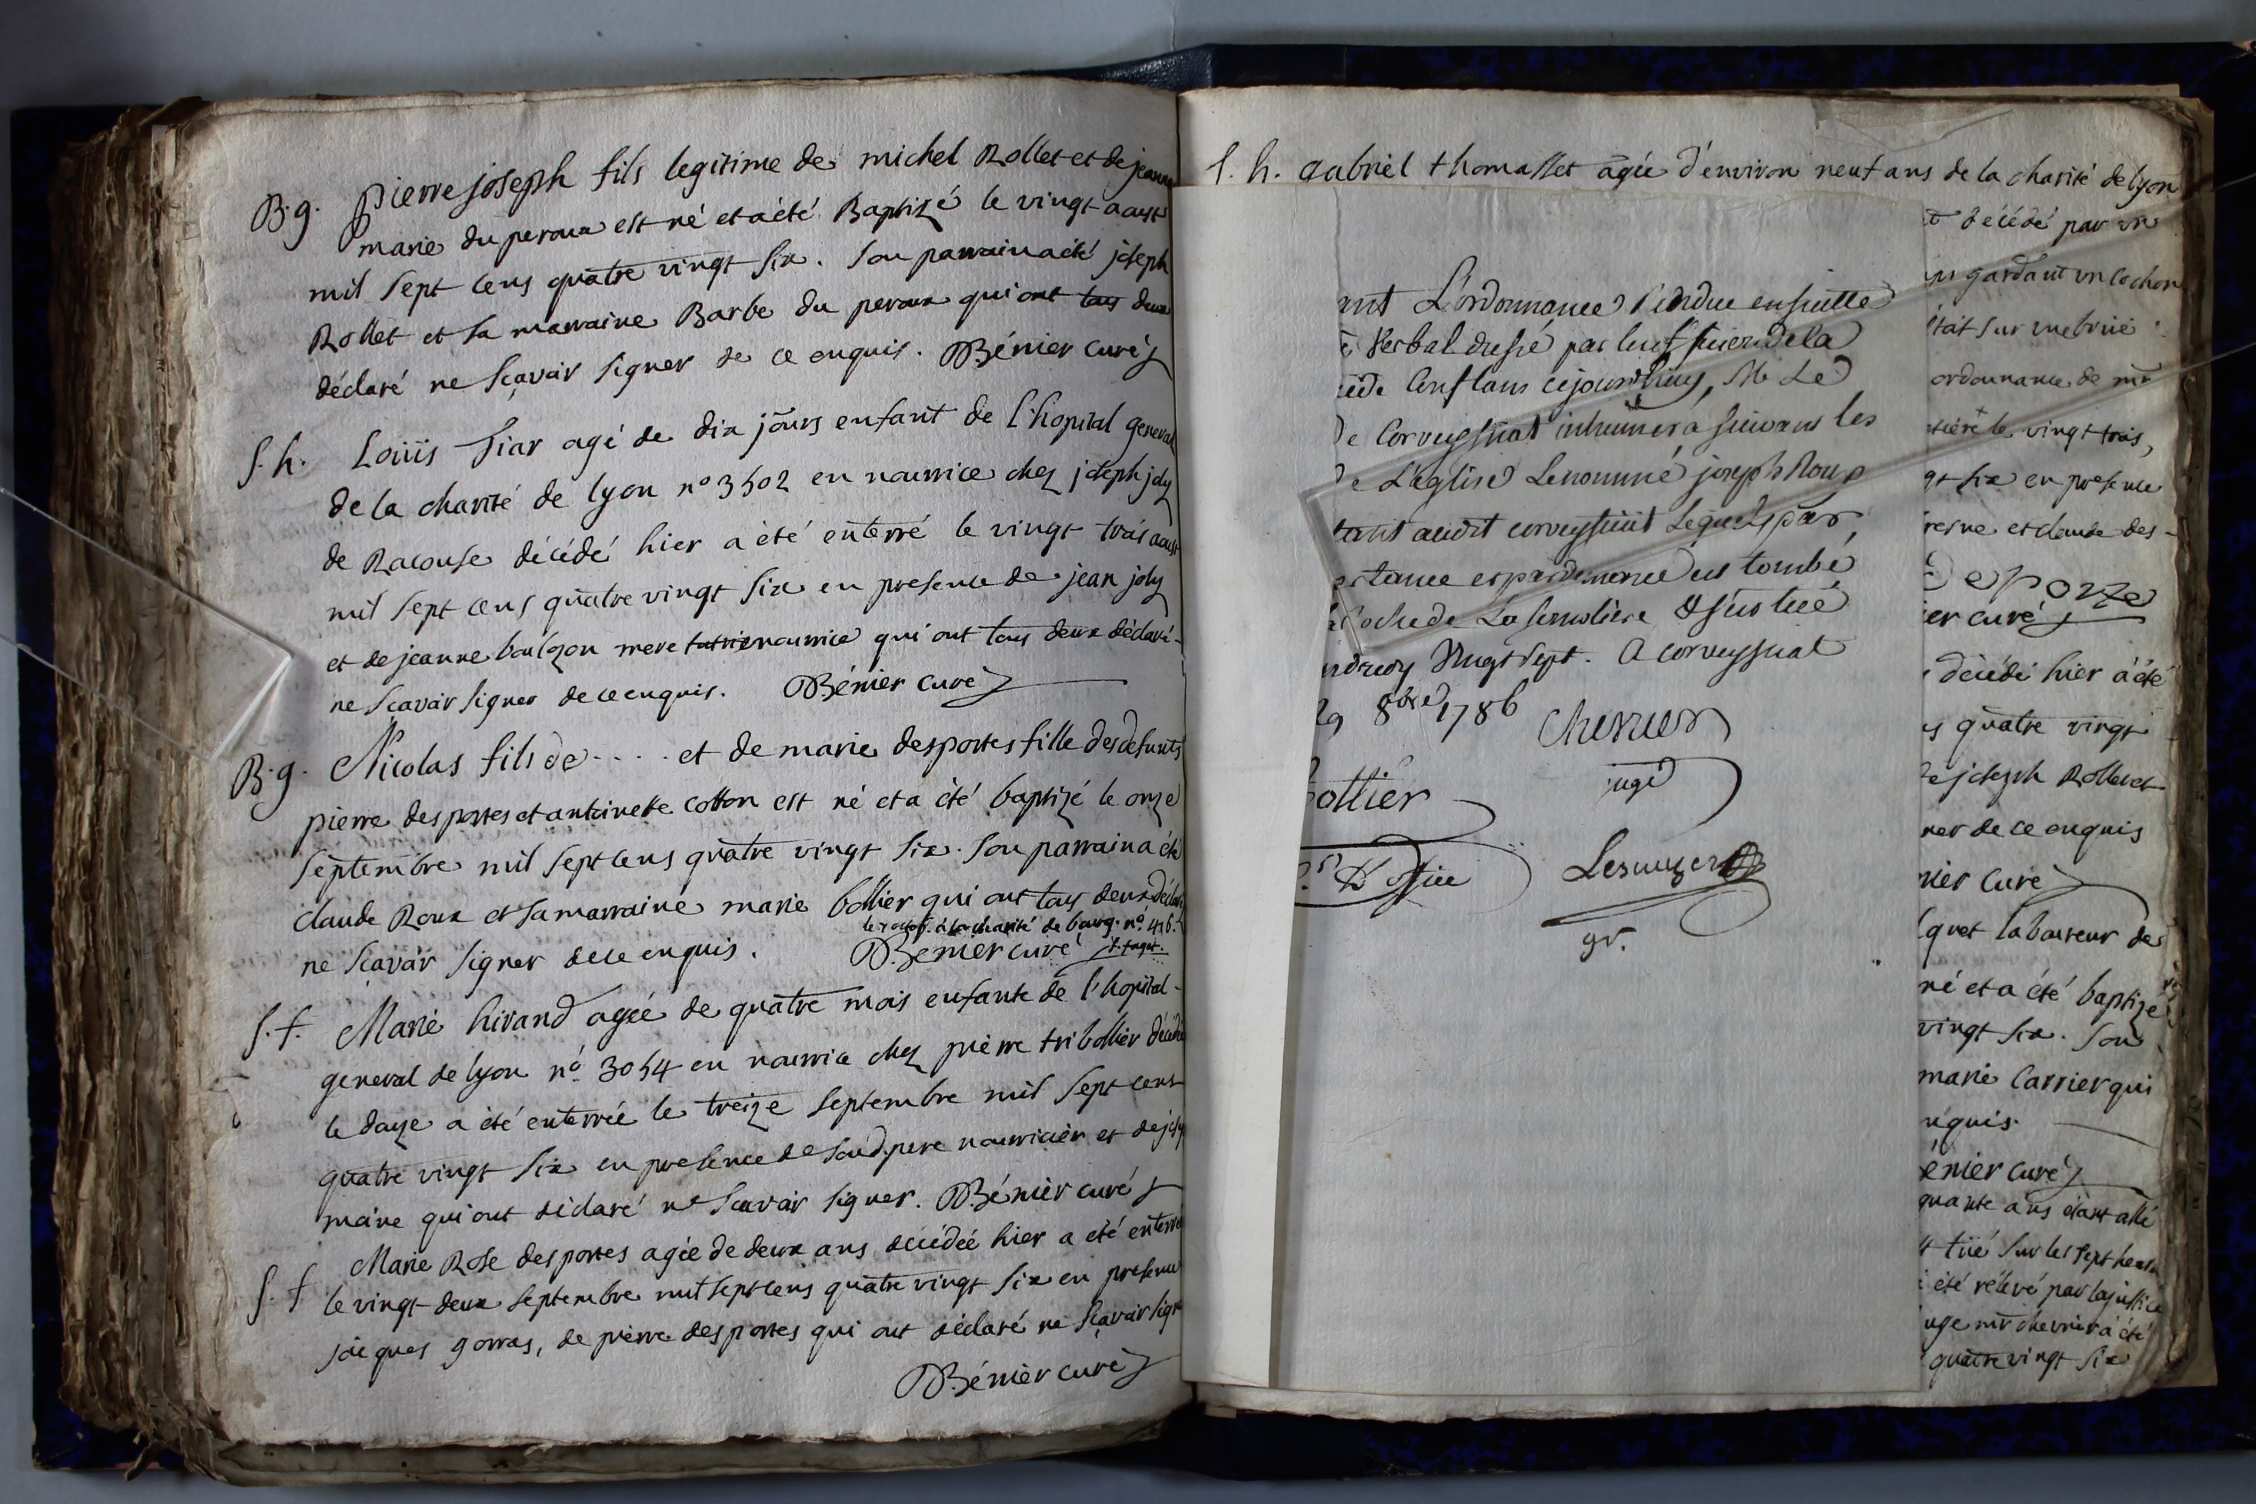 B.g. Pierre joseph fils legitime de michel Rollet et de jeanne
marie du peroux est né et a été Baptizé le vingt aoust
mil sept cens quatre vingt six. Son parrain a été joseph
Rollet et sa marraine Barbe du peroux qui ont tous deux
déclaré ne sçavoir signer de ce enquis. Bénier curé
S.h. Loüis agé de dix jours enfant de l'hopital general
de la charité de lyon n° 3502 en nourrice chez joseph joly
de Racouse décédé hier a été enterré le vingt trois aoust
mil sept cens quatre vingt six en presence de jean joly
et de jeanne mere nourrice qui ont tous deux déclaré
ne sçavoir signer de ce enquis. Bénier curé
B.g. Nicolas fils de .... et de marie desportes fille des defunts
pierre desportes et antoinette cotton est né et a été baptizé le onze
septembre mil sept cens quatre vingt six. Son parrain a été
claude Roux et sa marraine marie bollier qui ont tous deux déclaré
à la charité de bourg. n° 416.
ne sçavoir signer de ce enquis. Bénier curé
S.f. Marie hirand agée de quatre mois enfante de l'hopital
general de lyon n° 3054 en nourrice chez pierre tribollier décédée
le douze a été enterrée le treize septembre mil sept cens
quatre vingt six en presence de soud. pere nourricier et de
qui ont déclaré ne sçavoir signer. Bénier curé
S.f Marie Rose desportes agée de deux ans décédée hier a été enterrée
le vingt deux septembre mil sept cens quatre vingt six en presence
jacques gorras, de pierre desportes qui ont déclaré ne sçavoir signer
Bénier curé
S.h. Gabriel thomasset agée d'environ neuf ans de la charité de lyon
décédé par un
gardant un cochon
ordonnance de mr
le vingt trois,
six en presence
et claude des-
er curé
décédé hier a été
s quatre vingt
de joseph Rollet et
ner de ce enquis
nier curé
laboureur des
né et a été baptizé
vingt six. Son
marie Carrier qui
nquis.
énier curé
quante ans étant allé
tüé sur les sept heures
été rélevé par la justice
uge mr chevrier a été
quatre vingt six
L'ordonnance Rendue ensuitte
Verbal dressé par de la
Conflans cejourdhuy, Mr Le
de Corveyssiat inhumera suivant les
de L'église Le nommé joseph Roux
audit corveyssiat Lequel par
est tombé
de La & s'est tué
Vingt sept. A corveyssiat
29 8bre 1786
Chevrier
juge
ollier
D'office
gr.